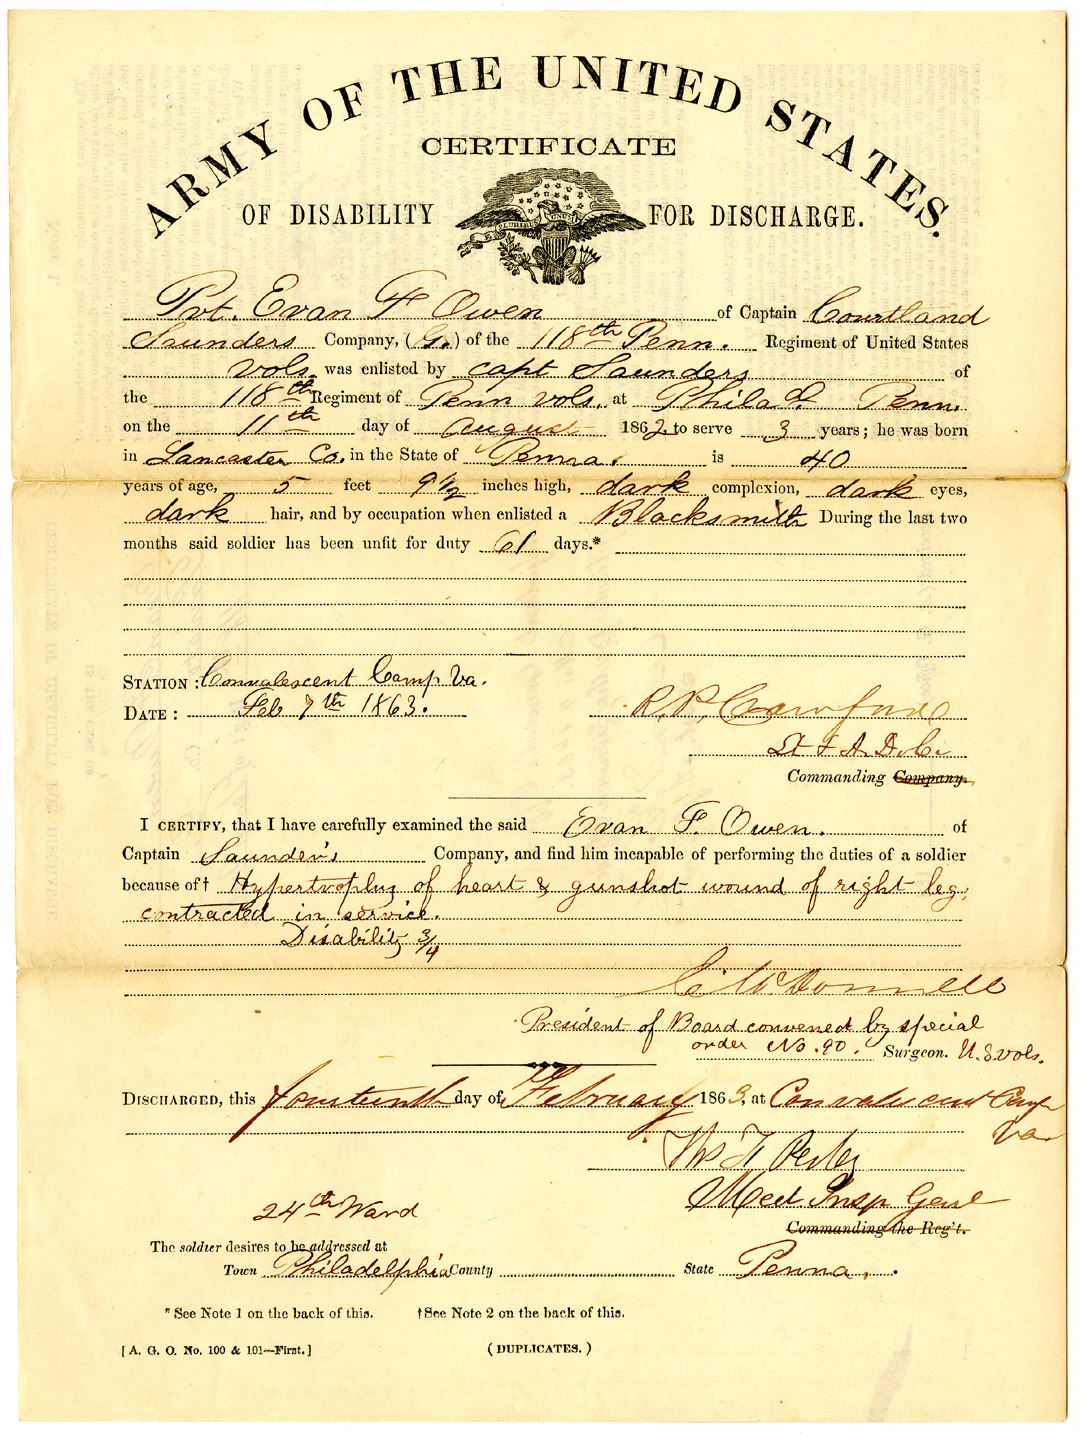 ARMY OF THE UNITED STATES.
CERTIFICATE
OF DISABILITY FOR DISCHARGE.
E PLURIBUS UNUM
Pvt. Evan F Owen of Captain Courtland
Saunders Company, (G.) of the 118th Penn. Regiment of United States
Vols. was enlisted by Capt Saunders of
the 118th Regiment of Penn Vols. at Philad. Penn.
on the 11th day of August 1862, to serve 3 years; he was born
in Lancaster Co. in the State of Penna. is 40
years of age, 5 feet 9 1/2 inches high, dark complexion, dark eyes,
dark hair, and by occupation when enlisted a Blacksmith During the last two
months said soldier has been unfit for duty 61 days.*
STATION: Convalescent Camp Va.
DATE: Feb 7th 1863.
R. P. Crawford
Lt & A. D. C.
Commanding Company.
I CERTIFY, that I have carefully examined the said Evan F. Owen. of
Captain Saunder's Company, and find him incapable of performing the duties of a soldier
because of† Hypertrophy of heart & gunshot wound of right leg,
contracted in service.
Disability 3/4
McDonnell
President of Board convened by special
order No. 90. Surgeon. U.S. Vols.
DISCHARGED, this fourteenth day of February 1863, at Convalescent Camp
Va
Med Insp Genl
Commanding the Reg't.
24th Ward
The soldier desires to be addressed at
Town Philadelphia County State Penna.
* See Note 1 on the back of this. †See Note 2 on the back of this.
[A. G. O. No. 100 & 101—First.] (DUPLICATES.)